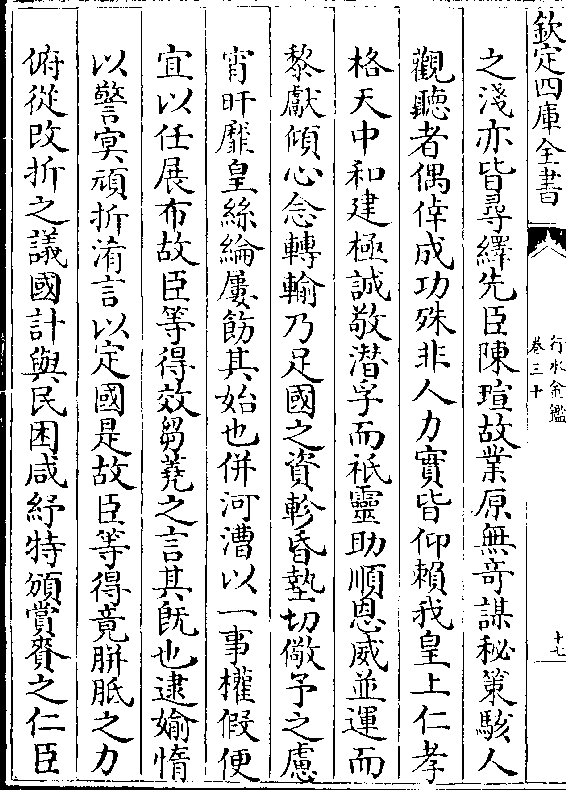 欽定四庫全書
行水金鑑
卷三十
十七
之淺亦皆尋繹先臣陳瑄故業原無奇謀秘策駭人
觀聽者偶倖成功殊非人力實皆仰賴我皇上仁孝
格天中和建極誠敬潜孚而祗靈助順恩威並運而
黎獻傾心念轉輸乃足國之資軫昏墊切儆予之慮
宵旰靡皇絲綸屢飭其始也併河漕以一事權假便
宜以任展布故臣等得效芻蕘之言其既也逮婾惰
以警㝠頑折淆言以定國是故臣等得竟胼胝之力
俯從改折之議國計與民困咸紓特頒賞賚之仁臣